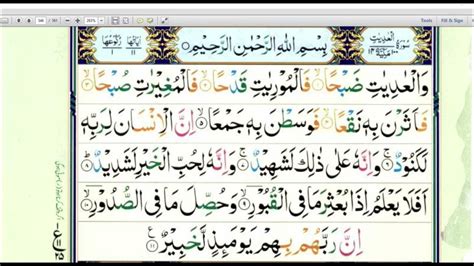 سُوْرَةُ الْعٰدِيٰتِ
اٰيَاتُهَا ١١ رُكُوْعُهَا ١
بِسْمِ اللّٰهِ الرَّحْمٰنِ الرَّحِيْمِ
وَالْعٰدِيٰتِ ضَبْحًا ۙ﴿١﴾ فَالْمُوْرِيٰتِ قَدْحًا ۙ﴿٢﴾ فَالْمُغِيْرٰتِ صُبْحًا ۙ﴿٣﴾
فَاَثَرْنَ بِهٖ نَقْعًا ۙ﴿٤﴾ فَوَسَطْنَ بِهٖ جَمْعًا ۙ﴿٥﴾ اِنَّ الْاِنْسَانَ لِرَبِّهٖ
لَكَنُوْدٌ ۚ﴿٦﴾ وَاِنَّهٗ عَلٰى ذٰلِكَ لَشَهِيْدٌ ۚ﴿٧﴾ وَاِنَّهٗ لِحُبِّ الْخَيْرِ لَشَدِيْدٌ ؕ﴿٨﴾
اَفَلَا يَعْلَمُ اِذَا بُعْثِرَ مَا فِى الْقُبُوْرِ ۙ﴿٩﴾ وَحُصِّلَ مَا فِى الصُّدُوْرِ ۙ﴿١٠﴾
اِنَّ رَبَّهُمْ بِهِمْ يَوْمَئِذٍ لَّخَبِيْرٌ ﴿١١﴾